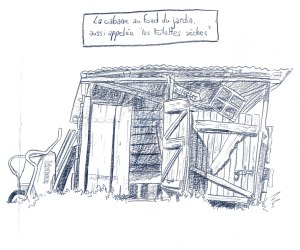 La cabane au fond du jardin,
aussi appelée "les toilettes sèches"